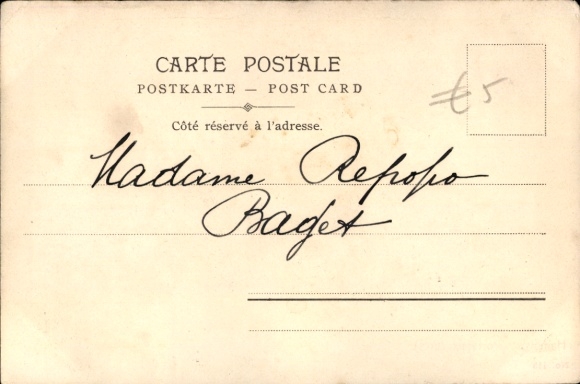 CARTE POSTALE
POSTKARTE — POST CARD
€5
Côté réservé à l'adresse.
Madame Repopo
Baget